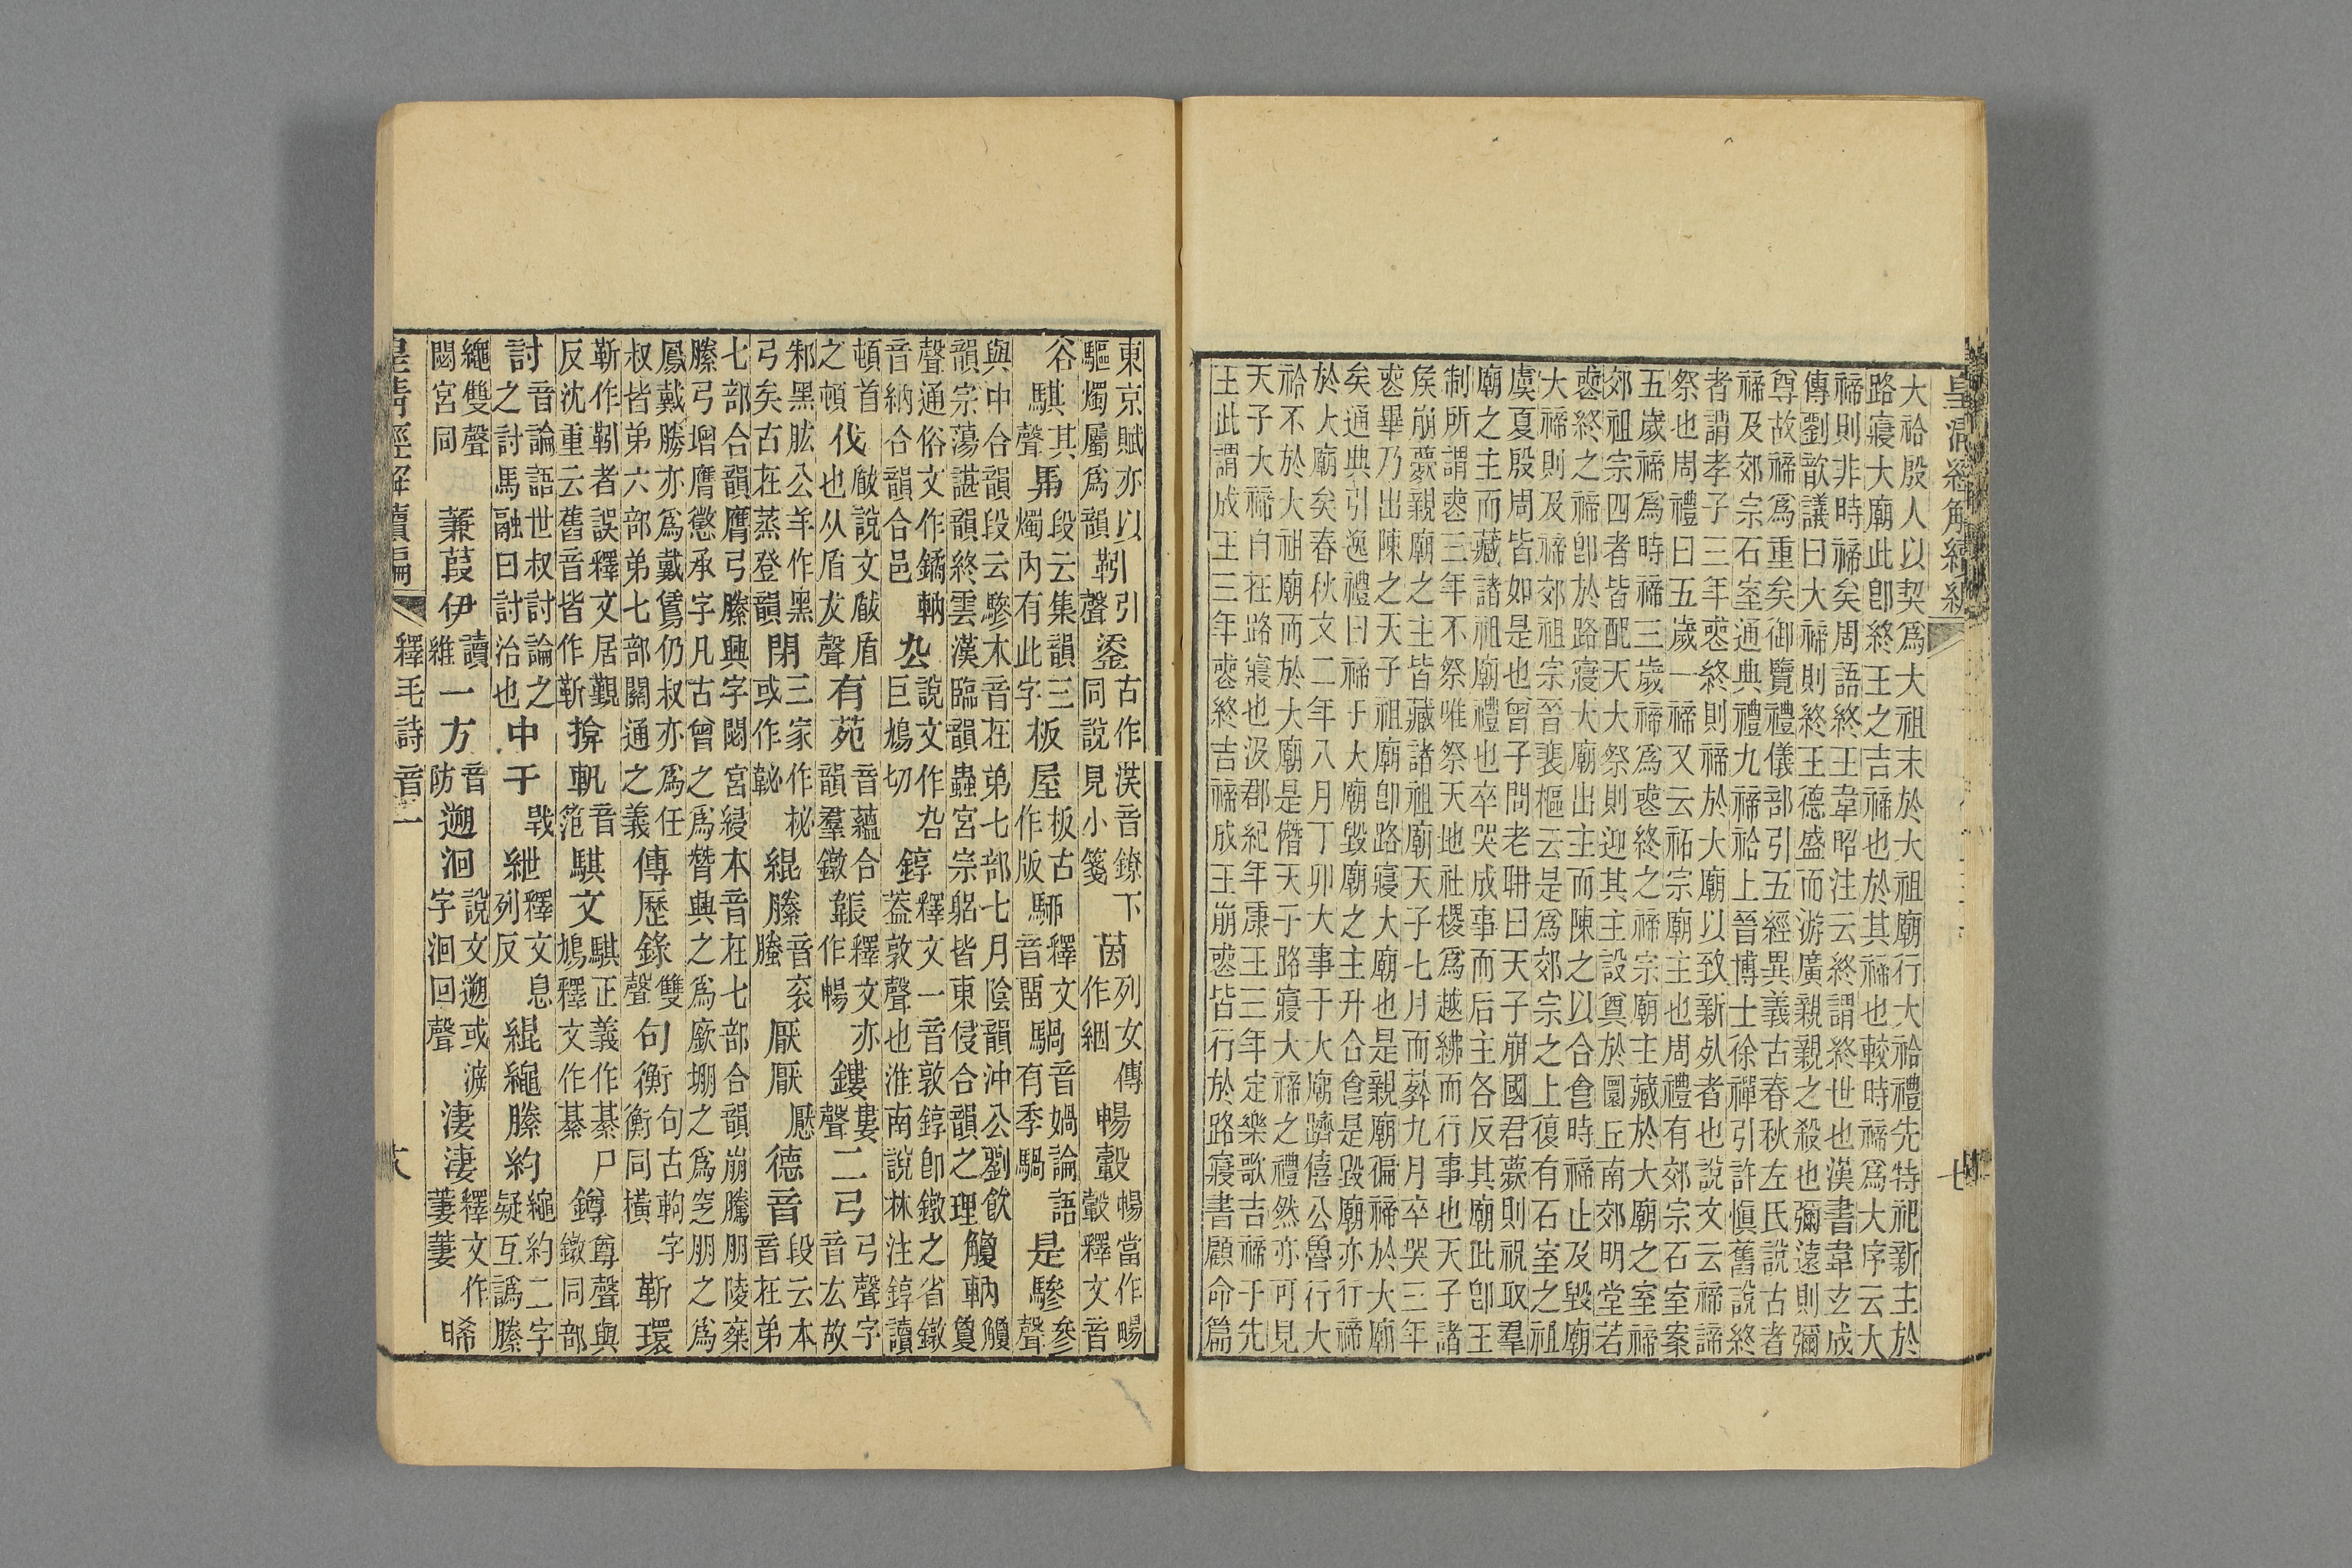 皇清經解續編　七
大祫殷人以契爲大祖末於大祖廟行大祫禮先特祀新主於
路寢大廟此卽終王之吉禘也於其禘也較時禘爲大序云大
禘則非時禘矣周語終王韋昭注云終謂終世也漢書韋玄成
傳劉歆議曰大禘則終王德盛而游廣親親之殺也彌遠則彌
尊故禘爲重矣御覽禮儀部引五經異義古春秋左氏說古者
禘及郊宗石室通典禮九禘祫上晉博士徐禪引許愼舊說終
者謂孝子三年喪終則禘於大廟以致新𣦸者也說文云禘諦
祭也周禮曰五歲一禘又云祏宗廟主也周禮有郊宗石室案
五歲禘爲時禘三歲禘爲喪終之禘宗廟主藏於大廟之室禘
郊祖宗四者皆配天大祭則迎其主設奠於圜丘南郊明堂若
喪終之禘卽於路寢大廟出主而陳之以合食時禘止及毀廟
大禘則及禘郊祖宗晉裴樞云是爲郊宗之上復有石室之祖
虞夏殷周皆如是也曾子問老耼曰天子崩國君薨則祝取羣
廟之主而藏諸祖廟禮也卒哭成事而后主各反其廟此卽王
制所謂喪三年不祭唯祭天地社稷爲越紼而行事也天子諸
矦崩薨親廟之主皆藏諸祖廟天子七月而葬九月卒哭三年
喪畢乃出陳之天子祖廟卽路寢大廟也是親廟徧禘於大廟
矣通典引逸禮曰禘于大廟毀廟之主升合食是毀廟亦行禘
於大廟矣春秋文二年八月丁卯大事于大廟躋僖公魯行大
祫不於大祖廟而於大廟是僭天子路寢大禘之禮然亦可見
天子大禘自在路寢也汲郡紀年康王三年定樂歌吉禘于先
王此謂成王三年喪終吉禘成王崩喪皆三年行於路寢書顧命篇
東京賦亦以驅燭屬爲韻靷引聲鋈古作漢音鐐下同說見小箋茵列女傳作絪暢轂暢當作暘轂釋文音
谷騏其聲馵段云集韻三燭內有此字板屋板古作版駵釋文音畱騧音媧論語有季騧是驂參聲
與中合韻段云驂本音在弟七部七月陰韻沖公劉飲韻宗蕩諶韻終雲漢臨韻蟲宮宗躬皆東侵合韻之理觼軜觼敻
聲通俗文作鐍軜音納合韻合邑厹說文作叴巨鳩切錞釋文一音敦錞卽鐓之省鐓葢敦聲也淮南說林注錞讀
頓首之頓伐瞂說文瞂盾也从盾犮聲有苑音蘊合韻羣鐓韔釋文亦作暢鏤婁聲二弓弓聲字音厷故
邾黑肱公羊作黑弓矣古在蒸登韻閉三家作柲或作䪐緄縢音衮縢厭厭懕德音段云本音在弟
七部合韻膺弓縢興字閟宮綅本音在七部合韻崩騰朋陵棄縢弓增膺懲承字凡古曾之爲朁興之爲廞堋之爲窆朋之爲
鳳戴勝亦爲戴鵀仍叔亦爲任叔皆弟六部弟七部關通之義傳歷錄雙聲句衡句古軥字衡同橫靳環
靳作靷者誤釋文居覲反沈重云舊音皆作靳揜軓音笵騏文騏正義作綦尸鳩釋文作綦鐏尊聲與鐓同部
討音論語世叔討論之之討馬融曰討治也中干戰紲釋文息列反緄繩縢約繩約二字疑互譌縢
繩雙聲閟宮同　蒹葭伊讀維一方音防遡洄說文遡或㴑字洄回聲淒淒釋文作萋萋晞
皇清經解續編　釋毛詩音二